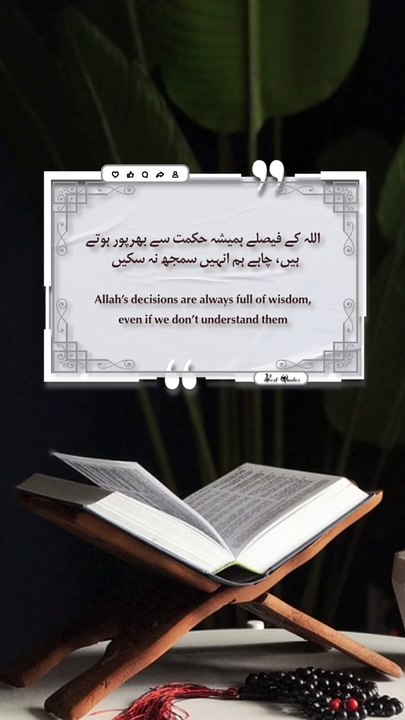 اللہ کے فیصلے ہمیشہ حکمت سے بھرپور ہوتے
ہیں، چاہے ہم انہیں سمجھ نہ سکیں
Allah's decisions are always full of wisdom,
even if we don't understand them
Best Quotes